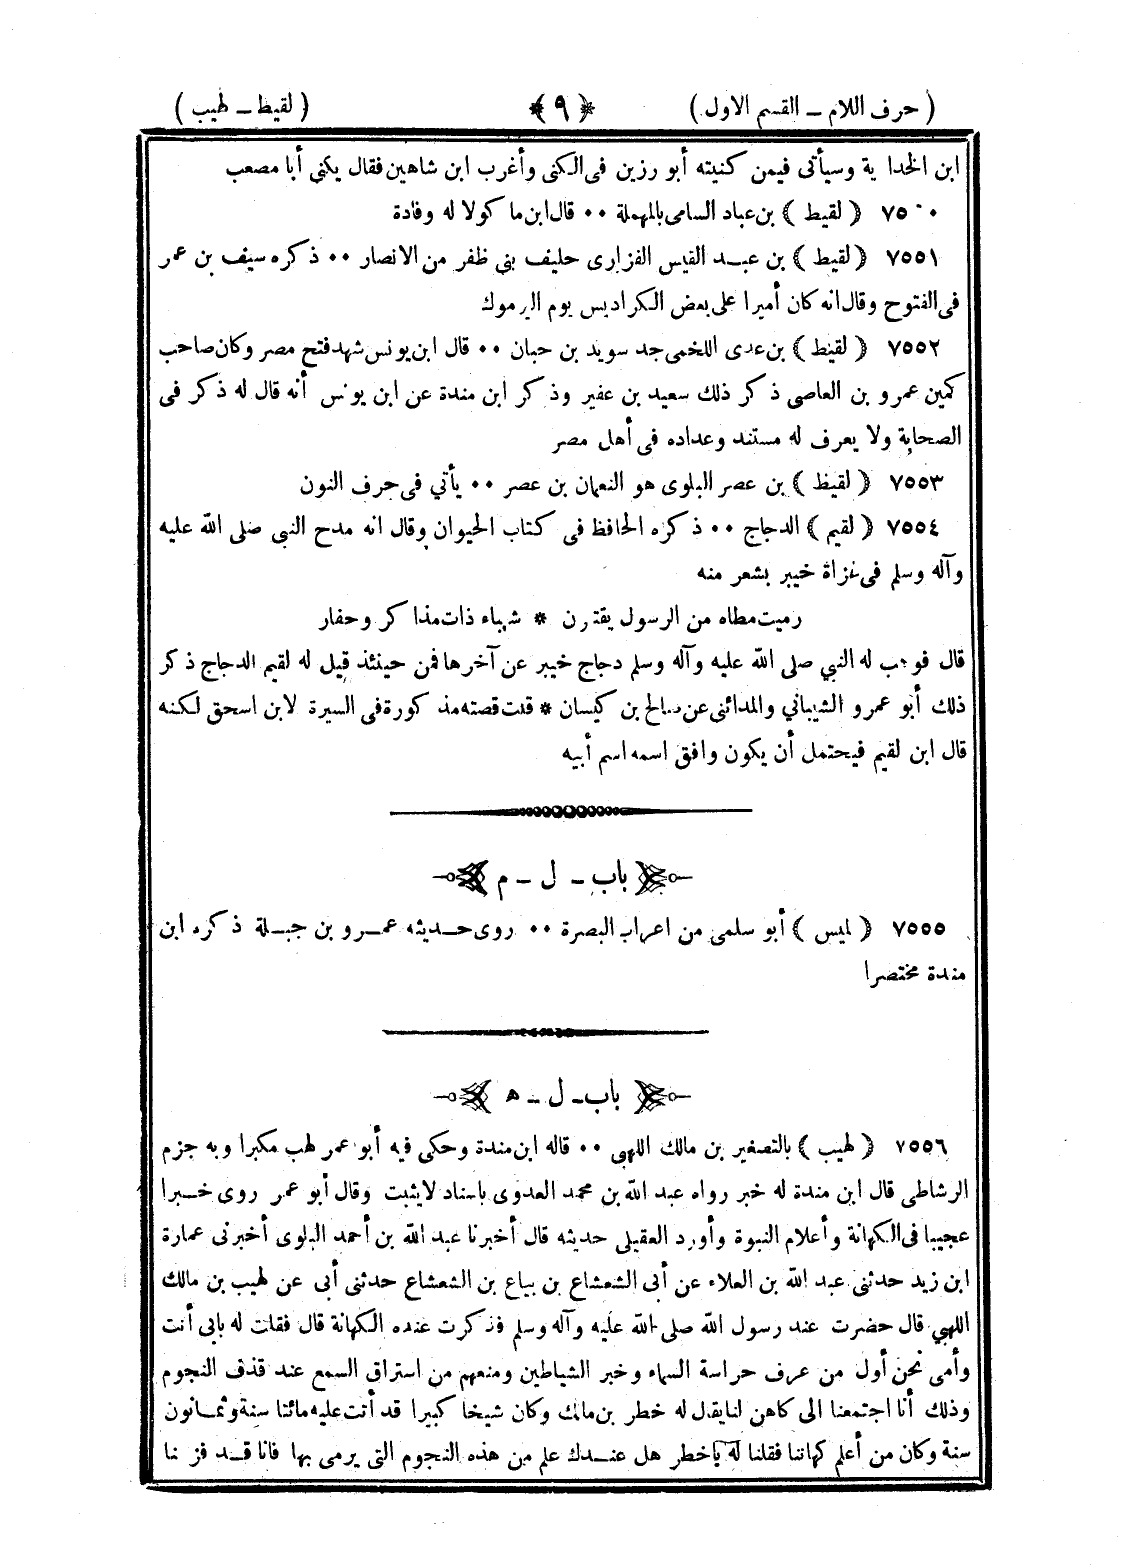 ( حرف اللام ـ القسم الاول ) ﴿ ٩ ﴾ ( لقيط ـ لهيب )
ابن الخدا ية وسيأتى فيمن كنيته أبو رزين فى الكنى وأغرب ابن شاهين فقال يكنى أبا مصعب
٧٥٥٠ ( لقيط ) بن عباد السامى بالمهملة ٠٠ قال ابن ما كولا له وفادة
٧٥٥١ ( لقيط ) بن عبد القيس الفزارى حليف بنى ظفر من الانصار ٠٠ ذ كره سيف بن عمر
فى الفتوح وقال انه كان أميرا على بعض الكراديس يوم اليرموك
٧٥٥٢ ( لقيط ) بن عدى اللخمى جد سويد بن حبان ٠٠ قال ابن يونس شهد فتح مصر وكان صاحب
كمين عمرو بن العاصى ذ كر ذلك سعيد بن عفير وذ كر ابن مندة عن ابن يونس أنه قال له ذ كر فى
الصحابة ولا يعرف له مستند وعداده فى أهل مصر
٧٥٥٣ ( لقيظ ) بن عصر البلوى هو النعمان بن عصر ٠٠ يأتي فى حرف النون
٧٥٥٤ ( لقيم ) الدجاج ٠٠ ذ كره الحافظ فى كتاب الحيوان وقال انه مدح النبى صلى الله عليه
وآله وسلم فى غزاة خيبر بشعر منه
رميت مطاه من الرسول يقترن * شهباء ذات مذا كر وحفار
قال فوهب له النبي صلى الله عليه وآله وسلم دجاج خيبر عن آخرها فمن حينئذ قيل له لقيم الدجاج ذ كر
ذلك أبو عمرو الشيباني والمدائنى عن صالح بن كيسان * قلت قصته مذ كورة فى السيرة لابن اسحق لكنه
قال ابن لقيم فيحتمل أن يكون وافق اسمه اسم أبيه
باب ـ ل ـ م
٧٥٥٥ ( لميس ) أبو سلمى من اعراب البصرة ٠٠ روى حديثه عمرو بن جبلة ذ كره ابن
مندة مختصرا
باب ـ ل ـ ه
٧٥٥٦ ( لهيب ) بالتصغير بن مالك اللهبى ٠٠ قاله ابن مندة وحكى فيه أبو عمر لهب مكبرا وبه جزم
الرشاطى قال ابن مندة له خبر رواه عبد الله بن محمد العدوى باسناد لا يثبت وقال أبو عمر روى خبرا
عجيبا فى الكهانة وأعلام النبوة وأورد العقيلى حديثه قال أخبرنا عبد الله بن أحمد البلوى أخبرنى عمارة
ابن زيد حدثنى عبد الله بن العلاء عن أبى الشعشاع بن بياع بن الشعشاع حدثنى أبى عن لهيب بن مالك
اللهبي قال حضرت عند رسول الله صلى الله عليه وآله وسلم فذكرت عنده الكهانة قال فقلت له بابى أنت
وأمى نحن أول من عرف حراسة السماء وخبر الشياطين ومنعهم من استراق السمع عند قذف النجوم
وذلك أنا اجتمعنا الى كاهن لنا يقال له خطر بن مالك وكان شيخا كبيرا قد أتت عليه مائتا سنة وثمانون
سنة وكان من أعلم كهاننا فقلنا له ياخطر هل عندك علم من هذه النجوم التى يرمى بها فانا قد فز نا